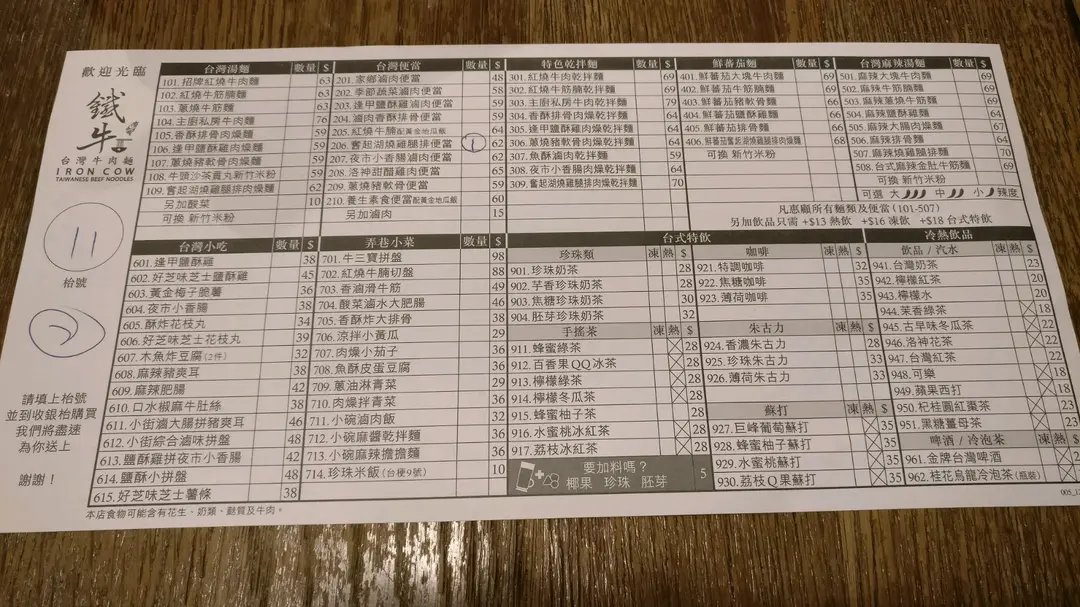 歡迎光臨
鐵牛
台灣牛肉麵
IRON COW
TAIWANESE BEEF NOODLES
11
枱號
2
請填上枱號
並到收銀枱購買
我們將盡速
為你送上
謝謝！
台灣湯麵 數量 $
101.招牌紅燒牛肉麵 63
102.紅燒牛筋腩麵 63
103.蔥燒牛筋麵 63
104.主廚私房牛肉麵 76
105.香酥排骨肉燥麵 59
106.逢甲鹽酥雞肉燥麵 59
107.蔥燒豬軟骨肉燥麵 59
108.牛頭沙茶貢丸新竹米粉 59
109.奮起湖燒雞腿排肉燥麵 62
另加酸菜 10
可換 新竹米粉
台灣便當 數量 $
201.家鄉滷肉便當 48
202.季節蔬菜滷肉便當 58
203.逢甲鹽酥雞滷肉便當 59
204.滷肉香酥排骨便當 59
205.紅燒牛腩配黃金地瓜飯 64
206.奮起湖燒雞腿排便當 1 62
207.夜市小香腸滷肉便當 62
208.洛神甜醋雞肉便當 65
209.蔥燒豬軟骨便當 59
210.養生素食便當配黃金地瓜飯 60
另加滷肉 15
特色乾拌麵 數量 $
301.紅燒牛肉乾拌麵 69
302.紅燒牛筋腩乾拌麵 69
303.主廚私房牛肉乾拌麵 69
304.香酥排骨肉燥乾拌麵 64
305.逢甲鹽酥雞肉燥乾拌麵 64
306.蔥燒豬軟骨肉燥乾拌麵 64
307.魚酥滷肉乾拌麵 59
308.夜市小香腸肉燥乾拌麵 64
309.奮起湖燒雞腿排肉燥乾拌麵 70
鮮蕃茄麵 數量 $
401.鮮蕃茄大塊牛肉麵 69
402.鮮蕃茄牛筋腩麵 69
403.鮮蕃茄豬軟骨麵 79
404.鮮蕃茄鹽酥雞麵 66
405.鮮蕃茄排骨麵 66
406.鮮蕃茄奮起湖燒雞腿排肉燥麵 68
可換 新竹米粉
台灣麻辣湯麵 數量 $
501.麻辣大塊牛肉麵 69
502.麻辣牛筋腩麵 69
503.麻辣蔥燒牛筋麵 69
504.麻辣鹽酥雞麵 64
505.麻辣大腸肉燥麵 67
506.麻辣排骨麵 64
507.麻辣燒雞腿排麵 70
508.台式麻辣金肚牛筋麵 69
可換 新竹米粉
可選 大 中 小 辣度
凡惠顧所有麵類及便當(101-507)
另加飲品只需 +$13 熱飲 +$16 凍飲 +$18 台式特飲
台灣小吃 數量 $
601.逢甲鹽酥雞 38
602.好芝味芝士鹽酥雞 45
603.黃金梅子脆薯 36
604.夜市小香腸 38
605.酥炸花枝丸 34
606.好芝味芝士花枝丸 39
607.木魚炸豆腐(2件) 32
608.麻辣豬爽耳 38
609.麻辣肥腸 42
610.口水椒麻牛肚絲 38
611.小街滷大腸拼豬爽耳 46
612.小街綜合滷味拼盤 48
613.鹽酥雞拼夜市小香腸 42
614.鹽酥小拼盤 48
615.好芝味芝士薯條 38
弄巷小菜 數量 $
701.牛三寶拼盤 98
702.紅燒牛腩切盤 88
703.香滷滑牛筋 49
704.酸菜滷水大肥腸 46
705.香酥炸大排骨 38
706.涼拌小黃瓜 29
707.肉燥小茄子 36
708.魚酥皮蛋豆腐 36
709.蔥油淋青菜 29
710.肉燥拌青菜 36
711.小碗滷肉飯 32
712.小碗麻醬乾拌麵 36
713.小碗麻辣擔擔麵 36
714.珍珠米飯(台稉9號) 10
台式特飲
珍珠類 凍 熱 $
901.珍珠奶茶 28
902.芋香珍珠奶茶 28
903.焦糖珍珠奶茶 30
904.胚芽珍珠奶茶 32
手搖茶 凍 熱 $
911.蜂蜜綠茶 28
912.百香果QQ冰茶 28
913.檸檬綠茶 28
914.檸檬冬瓜茶 28
915.蜂蜜柚子茶 28
916.水蜜桃冰紅茶 28
917.荔枝冰紅茶 28
要加料嗎？
椰果 珍珠 胚芽 5
咖啡 凍 熱 $
921.特調咖啡 32
922.焦糖咖啡 35
923.薄荷咖啡 35
朱古力 凍 熱 $
924.香濃朱古力 28
925.珍珠朱古力 33
926.薄荷朱古力 33
蘇打 凍 熱 $
927.巨峰葡萄蘇打 35
928.蜂蜜柚子蘇打 35
929.水蜜桃蘇打 35
930.荔枝Q果蘇打 35
冷熱飲品
飲品 / 汽水 凍 熱 $
941.台灣奶茶 23
942.檸檬紅茶 20
943.檸檬水 20
944.茉香綠茶 18
945.古早味冬瓜茶 22
946.洛神花茶 22
947.台灣紅茶 22
948.可樂 18
949.蘋果西打 18
950.杞桂圓紅棗茶 23
951.黑糖薑母茶 23
啤酒 / 冷泡茶 凍 熱 $
961.金牌台灣啤酒
962.桂花烏龍冷泡茶(瓶裝)
本店食物可能含有花生、奶類、麩質及牛肉。